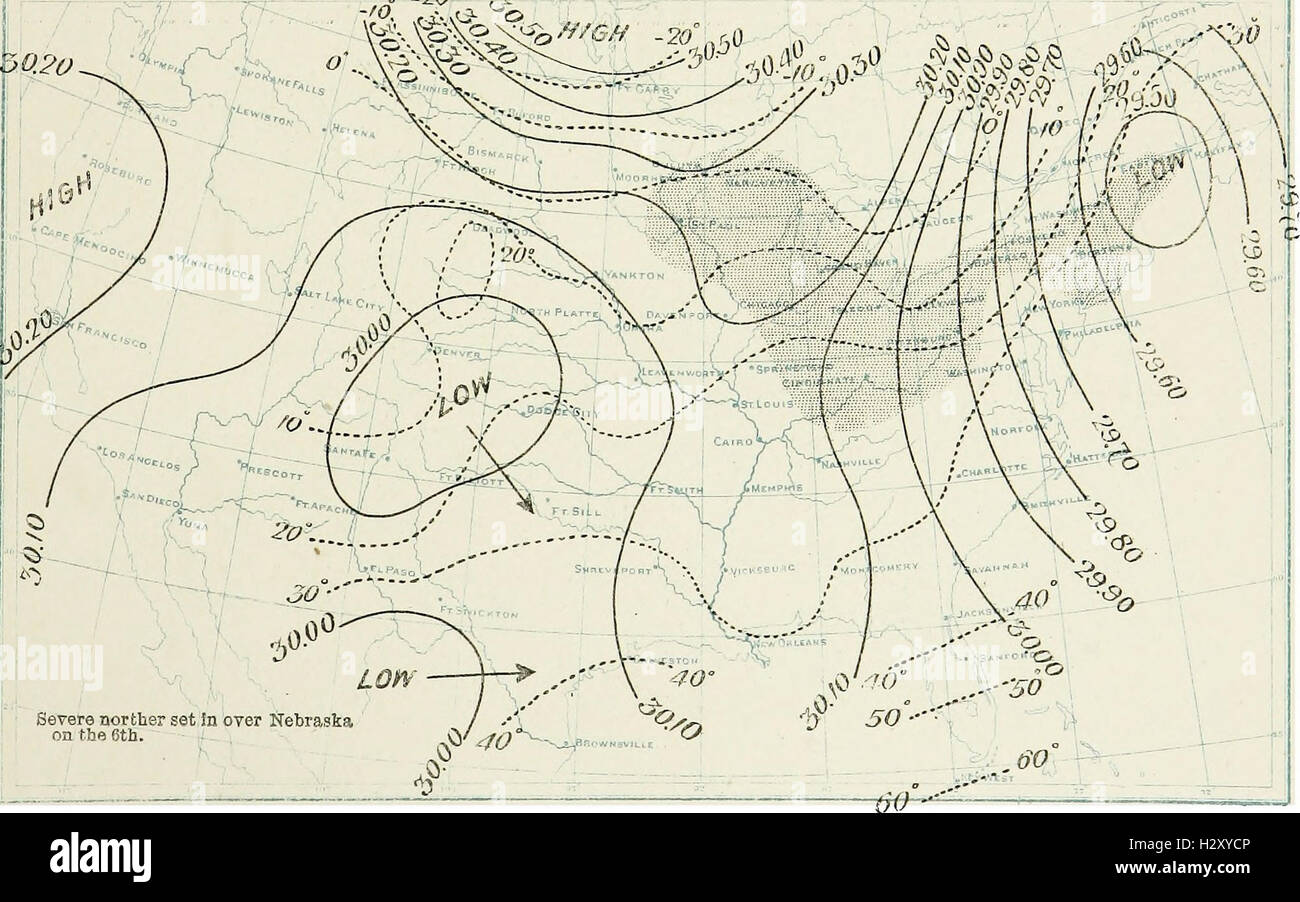 30.50
HIGH
-20°
-10°
30.50
30.40
30.30
30.20
0°
30.40
-10°
30.30
30.20
30.10
30.00
29.90
29.80
29.70
29.60
20°
29.50
30°
0°
10°
30.20
OLYMPIA
SPOKANE FALLS
LEWISTON
HELENA
FT. GARRY
BUFORD
BISMARCK
MOORHEAD
ROSEBURG
HIGH
CAPE MENDOCINO
WINNEMUCCA
SALT LAKE CITY
SAN FRANCISCO
30.20
ST. PAUL
ALPENA
SAUGEEN
CHATHAM
HALIFAX
LOW
29.70
29.60
20°
YANKTON
NORTH PLATTE
OMAHA
DAVENPORT
CHICAGO
NEW YORK
PHILADELPHIA
WASHINGTON
30.00
DENVER
LOW
LEAVENWORTH
CINCINNATI
DODGE CITY
ST. LOUIS
10°
29.60
29.70
SANTA FE
CAIRO
NASHVILLE
NORFOLK
HATTERAS
CHARLOTTE
LOS ANGELOS
PRESCOTT
FT. ELLIOTT
FT. SMITH
MEMPHIS
SMITHVILLE
SAN DIEGO
YUMA
FT. APACHE
FT. SILL
29.80
20°
30.10
EL PASO
SHREVEPORT
VICKSBURG
MONTGOMERY
SAVANNAH
29.90
30°
FT. STOCKTON
JACKSONVILLE
40°
30.00
30.00
NEW ORLEANS
SANFORD
LOW
GALVESTON
40°
30.10
30.10
40°
50°
50°
Severe norther set in over Nebraska
on the 6th.
40°
BROWNSVILLE
30.00
60°
KEY WEST
60°
alamy
alamy
Image ID: H2XYCP
www.alamy.com